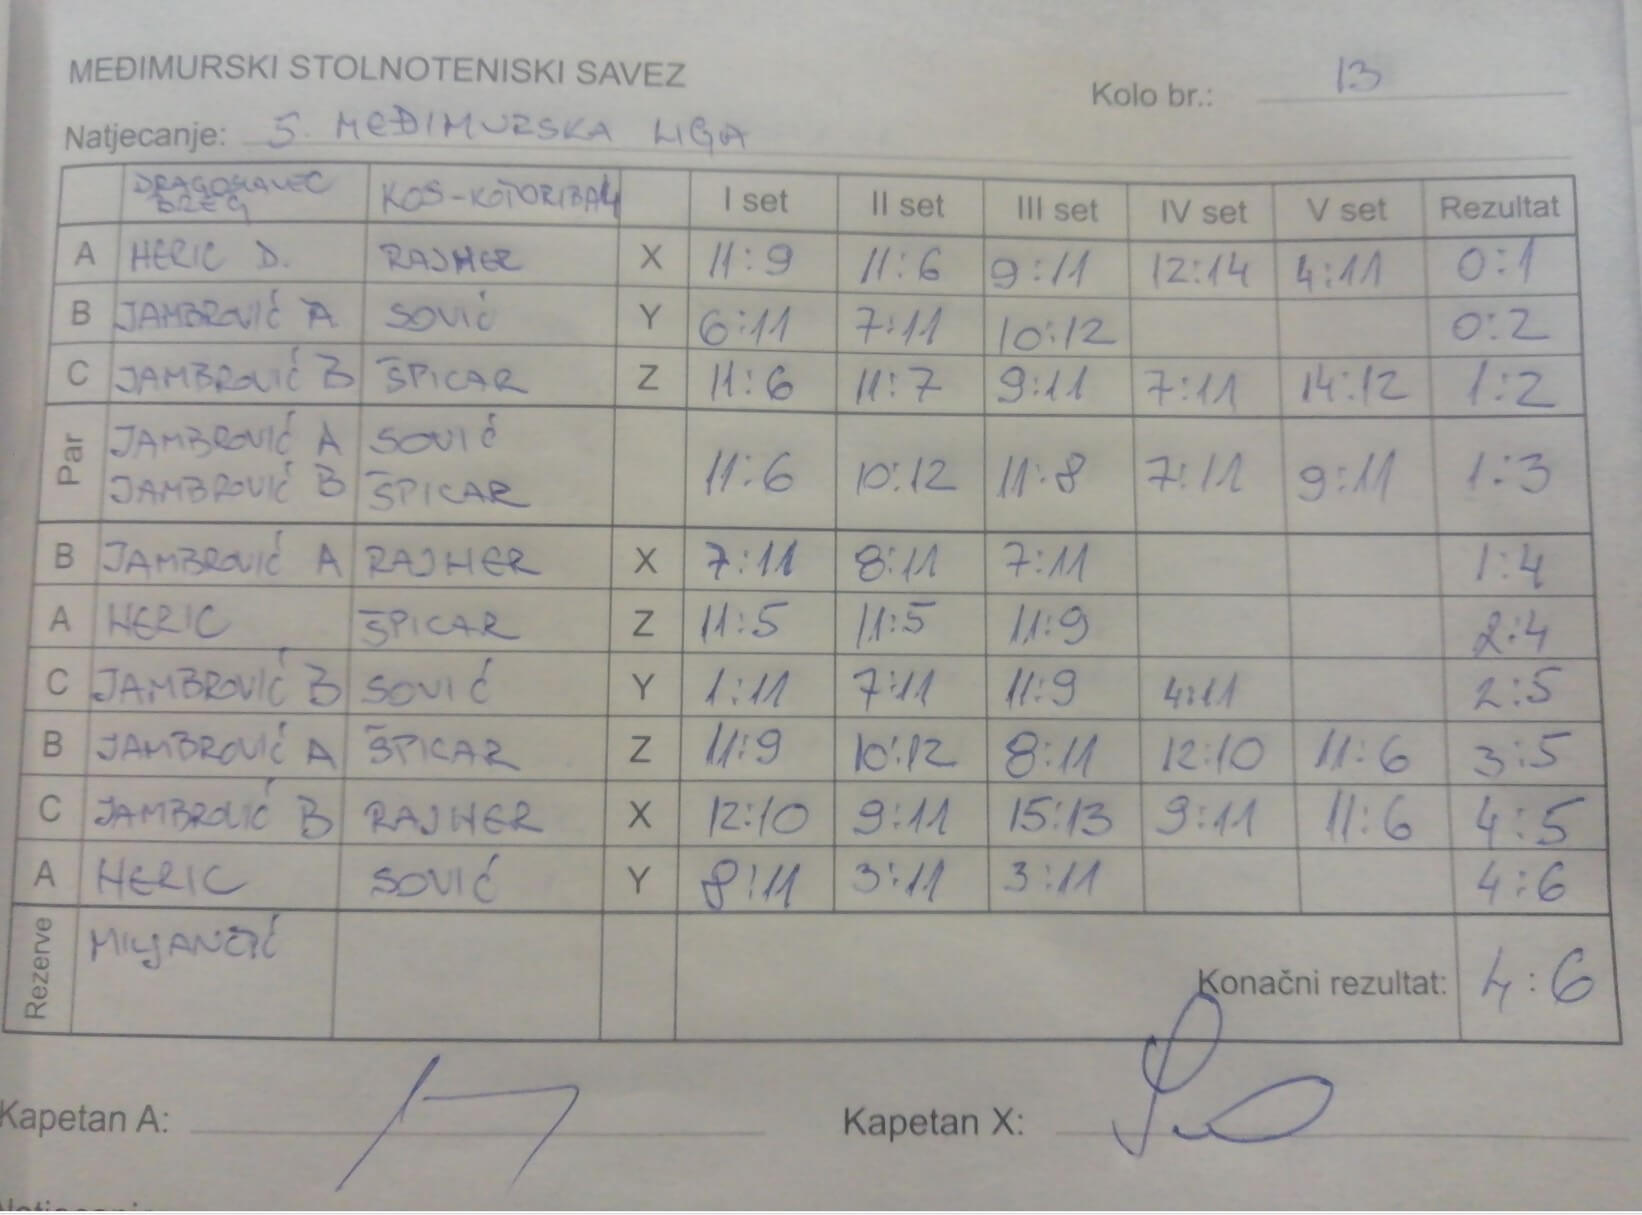 MEĐIMURSKI STOLNOTENISKI SAVEZ
Kolo br.: 13
Natjecanje: 5. MEĐIMURSKA LIGA
DRAGOSLAVEC BREG KOS-KOTORIBA 4 I set II set III set IV set V set Rezultat
A HERIC D. RAJHER X 11:9 11:6 9:11 12:14 4:11 0:1
B JAMBROVIĆ A SOVIĆ Y 6:11 7:11 10:12 0:2
C JAMBROVIĆ B ŠPICAR Z 11:6 11:7 9:11 7:11 14:12 1:2
Par JAMBROVIĆ A SOVIĆ
JAMBROVIĆ B ŠPICAR 11:6 10:12 11:8 7:11 9:11 1:3
B JAMBROVIĆ A RAJHER X 7:11 8:11 7:11 1:4
A HERIC ŠPICAR Z 11:5 11:5 11:9 2:4
C JAMBROVIĆ B SOVIĆ Y 1:11 7:11 11:9 4:11 2:5
B JAMBROVIĆ A ŠPICAR Z 11:9 10:12 8:11 12:10 11:6 3:5
C JAMBROVIĆ B RAJHER X 12:10 9:11 15:13 9:11 11:6 4:5
A HERIC SOVIĆ Y 8:11 3:11 3:11 4:6
Rezerve
Konačni rezultat: 4:6
Kapetan A: Kapetan X:
Natjecanje: